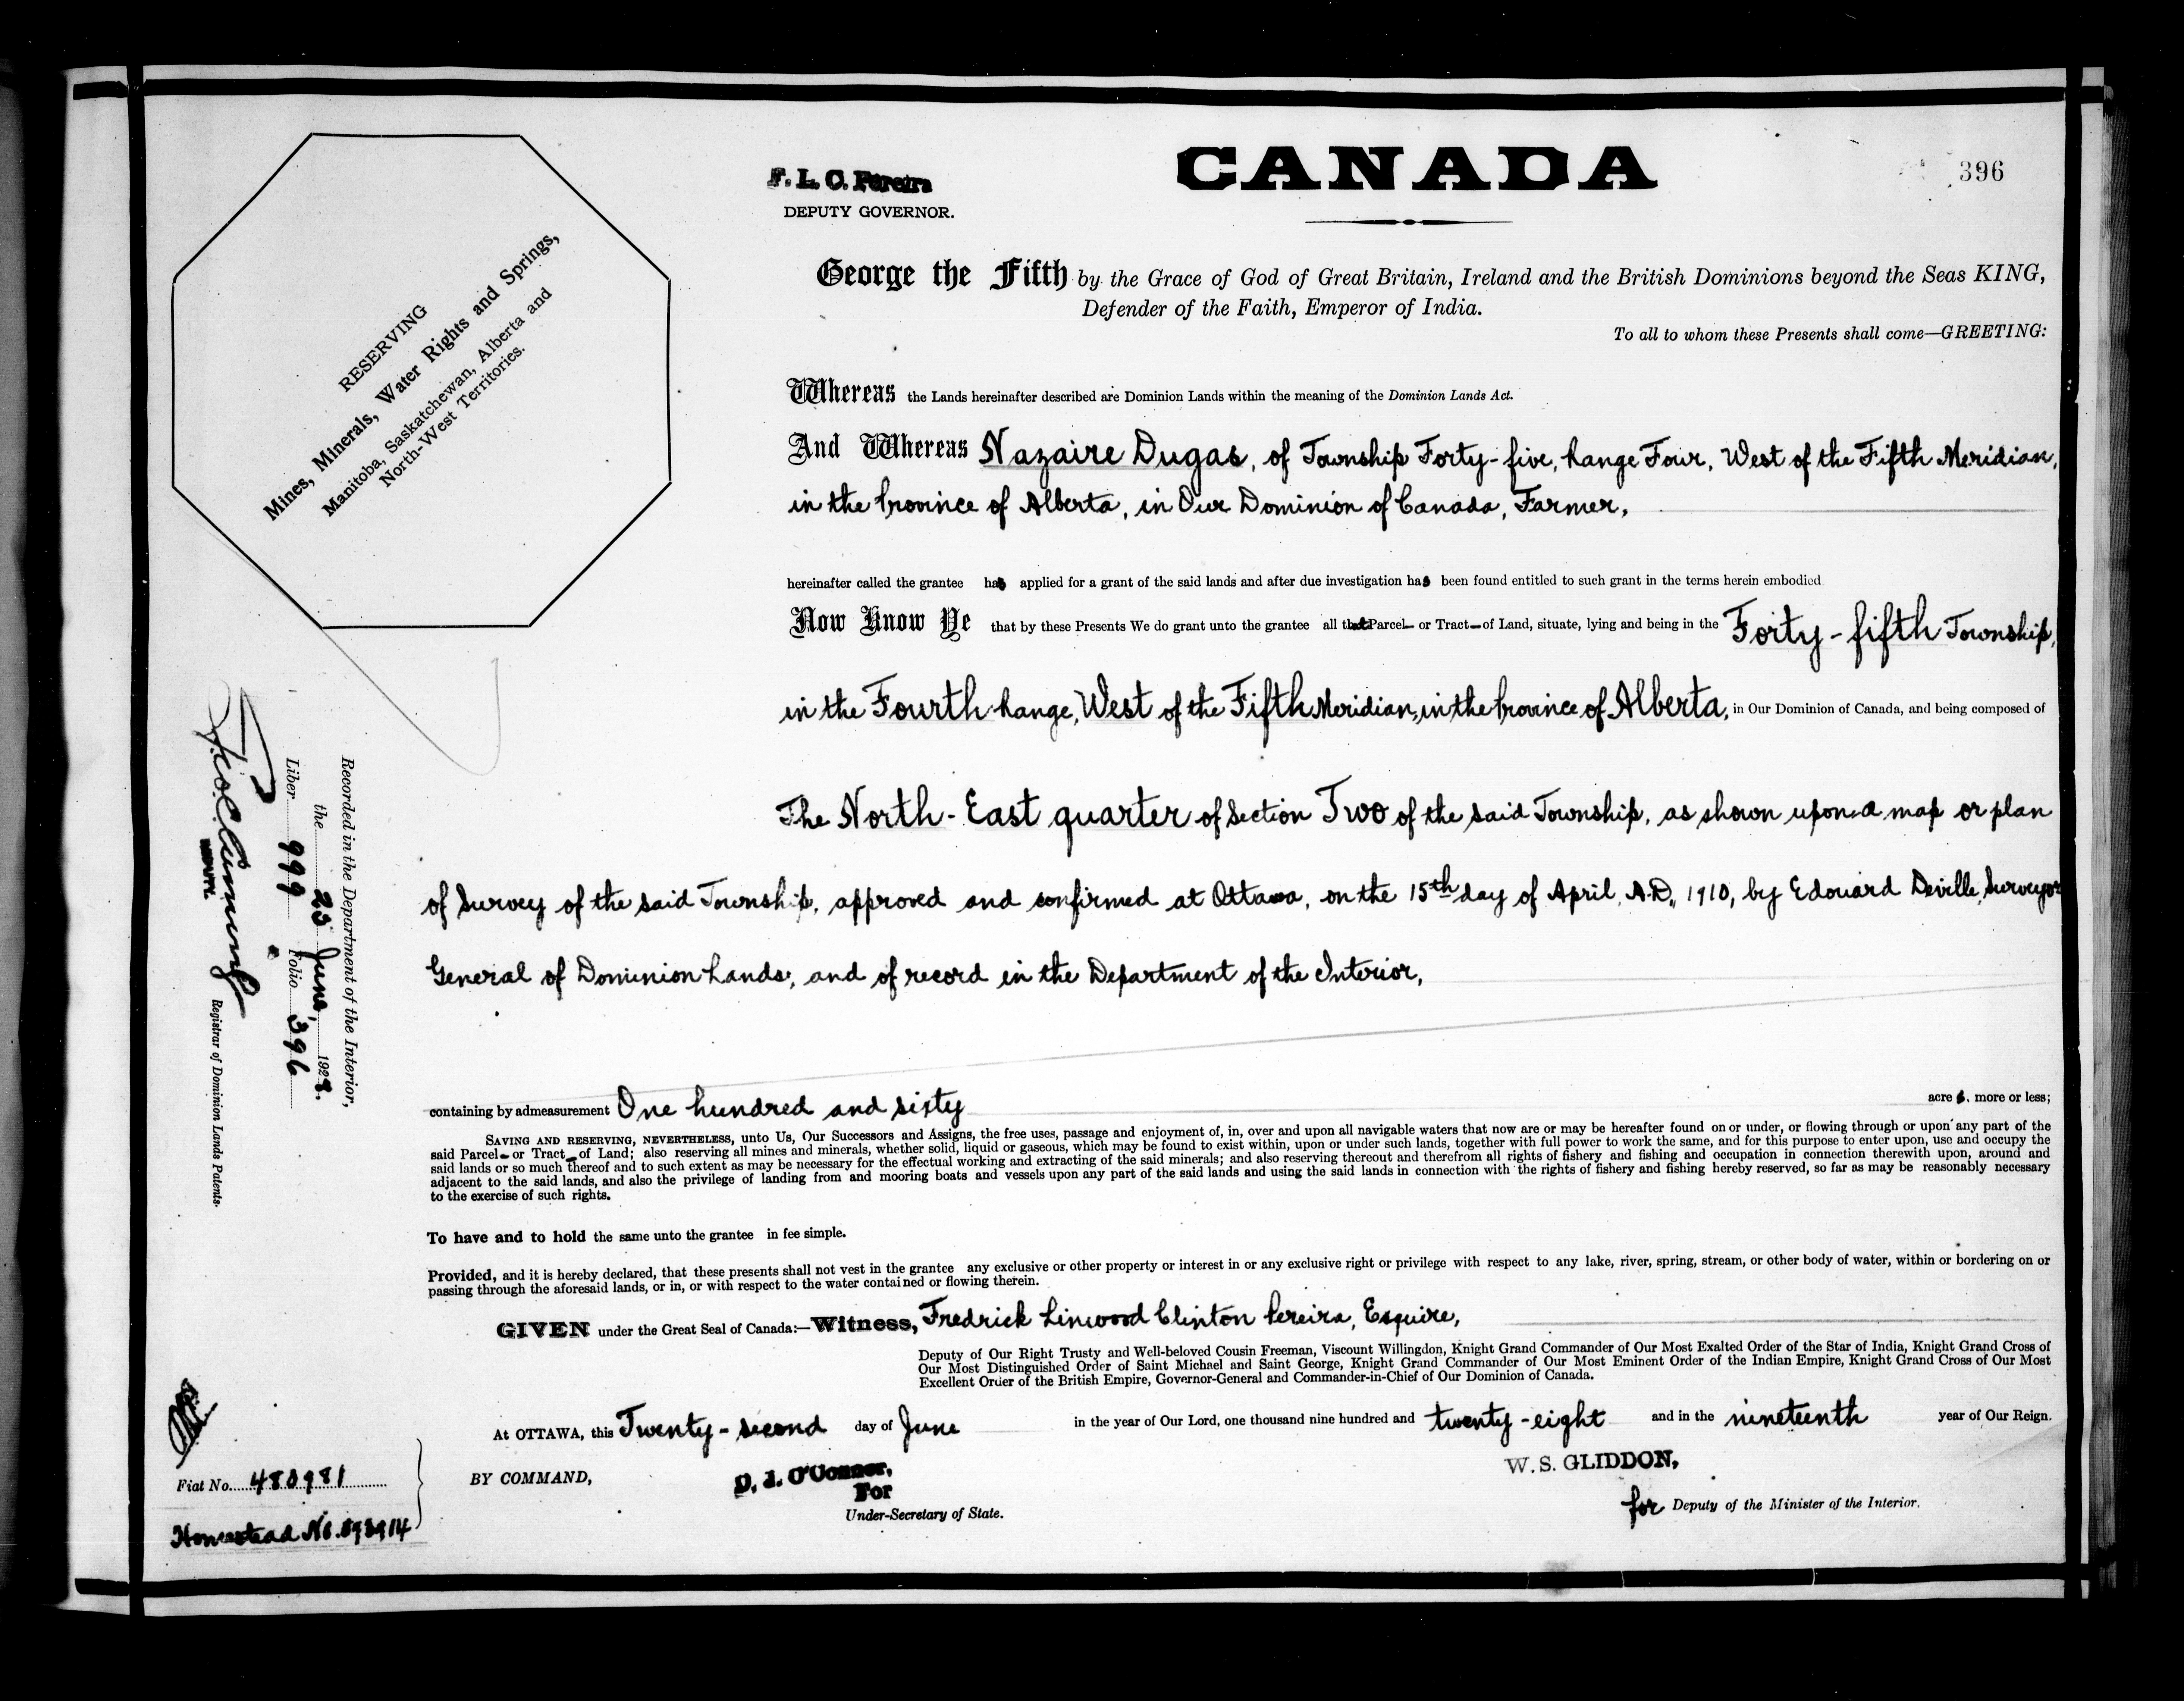 CANADA
396
F. L. C. Pereira
DEPUTY GOVERNOR.
RESERVING
Mines, Minerals, Water Rights and Springs,
Manitoba, Saskatchewan, Alberta and
North-West Territories.
George the Fifth by the Grace of God of Great Britain, Ireland and the British Dominions beyond the Seas KING,
Defender of the Faith, Emperor of India.
To all to whom these Presents shall come—GREETING:
Whereas the Lands hereinafter described are Dominion Lands within the meaning of the Dominion Lands Act.
And Whereas Nazaire Dugas, of Township Forty-five, Range Four, West of the Fifth Meridian,
in the Province of Alberta, in Our Dominion of Canada, Farmer,
hereinafter called the grantee has applied for a grant of the said lands and after due investigation has been found entitled to such grant in the terms herein embodied
Now Know Ye that by these Presents We do grant unto the grantee all that Parcel or Tract of Land, situate, lying and being in the Forty-fifth Township,
in the Fourth Range, West of the Fifth Meridian, in the Province of Alberta, in Our Dominion of Canada, and being composed of
The North-East quarter of Section Two of the said Township, as shown upon a map or plan
of Survey of the said Township, approved and confirmed at Ottawa, on the 15th day of April, A.D., 1910, by Edouard Deville, Surveyor
General of Dominion Lands, and of record in the Department of the Interior,
containing by admeasurement One hundred and sixty acres. more or less;
SAVING AND RESERVING, NEVERTHELESS, unto Us, Our Successors and Assigns, the free uses, passage and enjoyment of, in, over and upon all navigable waters that now are or may be hereafter found on or under, or flowing through or upon any part of the
said Parcel or Tract of Land; also reserving all mines and minerals, whether solid, liquid or gaseous, which may be found to exist within, upon or under such lands, together with full power to work the same, and for this purpose to enter upon, use and occupy the
said lands or so much thereof and to such extent as may be necessary for the effectual working and extracting of the said minerals; and also reserving thereout and therefrom all rights of fishery and fishing and occupation in connection therewith upon, around and
adjacent to the said lands, and also the privilege of landing from and mooring boats and vessels upon any part of the said lands and using the said lands in connection with the rights of fishery and fishing hereby reserved, so far as may be reasonably necessary
to the exercise of such rights.
To have and to hold the same unto the grantee in fee simple.
Provided, and it is hereby declared, that these presents shall not vest in the grantee any exclusive or other property or interest in or any exclusive right or privilege with respect to any lake, river, spring, stream, or other body of water, within or bordering on or
passing through the aforesaid lands, or in, or with respect to the water contained or flowing therein.
GIVEN under the Great Seal of Canada:—Witness, Fredrick Linwood Clinton Pereira, Esquire,
Deputy of Our Right Trusty and Well-beloved Cousin Freeman, Viscount Willingdon, Knight Grand Commander of Our Most Exalted Order of the Star of India, Knight Grand Cross of
Our Most Distinguished Order of Saint Michael and Saint George, Knight Grand Commander of Our Most Eminent Order of the Indian Empire, Knight Grand Cross of Our Most
Excellent Order of the British Empire, Governor-General and Commander-in-Chief of Our Dominion of Canada.
At OTTAWA, this Twenty-second day of June in the year of Our Lord, one thousand nine hundred and twenty-eight and in the nineteenth year of Our Reign.
BY COMMAND,
D. J. O'Connor,
For
Under-Secretary of State.
W. S. GLIDDON,
for Deputy of the Minister of the Interior.
Recorded in the Department of the Interior,
the 25 June, 1928.
Liber 999 Folio 396
Registrar of Dominion Lands Patents.
Fiat No. 480981
Homestead No.